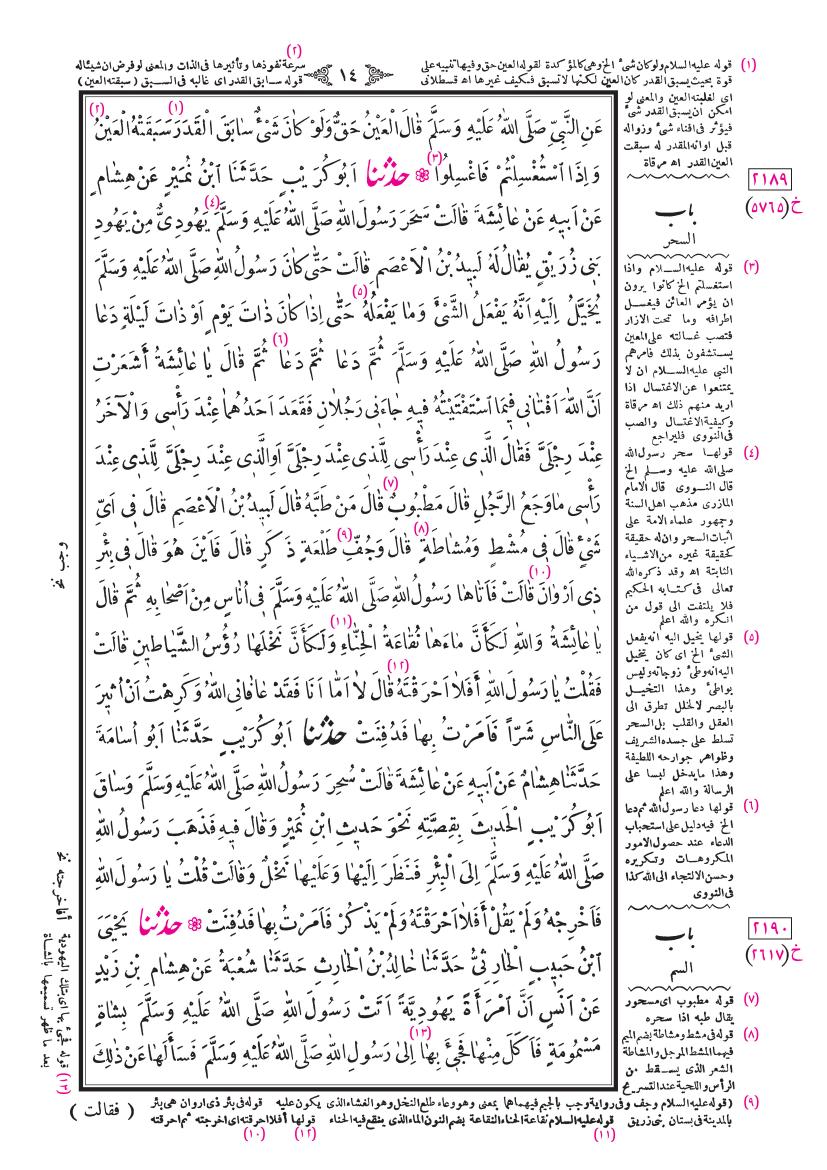 (٢)
(١) قوله عليه السلام ولو كان شئ الخ وهى كالمؤكدة لقوله العين حق وفيها تنبيه على
قوة بحيث يسبق القدر كان العين لكنها لا تسبق فكيف غيرها اه قسطلانى
١٤
سرعة نفوذها وتأثيرها فى الذات والمعنى لو فرض ان شيئا له
قوله سابق القدر اى غالبه فى السبق (سبقته العين)
(١) (٢)
عَنِ النَّبِيِّ صَلَّى اللهُ عَلَيْهِ وَسَلَّمَ قَالَ الْعَيْنُ حَقٌّ وَلَوْ كَانَ شَىْءٌ سَابَقَ الْقَدَرَ سَبَقَتْهُ الْعَيْنُ
وَاِذَا اسْتُغْسِلْتُمْ فَاغْسِلُوا (٣) حَدَّثَنَا اَبُو كُرَيْبٍ حَدَّثَنَا ابْنُ نُمَيْرٍ عَنْ هِشَامٍ
عَنْ اَبِيهِ عَنْ عَائِشَةَ قَالَتْ سَحَرَ رَسُولَ اللهِ صَلَّى اللهُ عَلَيْهِ وَسَلَّمَ (٤) يَهُودِىٌّ مِنْ يَهُودِ
بَنِى زُرَيْقٍ يُقَالُ لَهُ لَبِيدُ بْنُ الْاَعْصَمِ قَالَتْ حَتَّى كَانَ رَسُولُ اللهِ صَلَّى اللهُ عَلَيْهِ وَسَلَّمَ
يُخَيَّلُ اِلَيْهِ اَنَّهُ يَفْعَلُ الشَّىْءَ وَمَا يَفْعَلُهُ (٥) حَتَّى اِذَا كَانَ ذَاتَ يَوْمٍ اَوْ ذَاتَ لَيْلَةٍ دَعَا
رَسُولُ اللهِ صَلَّى اللهُ عَلَيْهِ وَسَلَّمَ ثُمَّ دَعَا ثُمَّ دَعَا (٦) ثُمَّ قَالَ يَا عَائِشَةُ أَشَعَرْتِ
اَنَّ اللهَ اَفْتَانِى فِيمَا اسْتَفْتَيْتُهُ فِيهِ جَاءَنِى رَجُلَانِ فَقَعَدَ اَحَدُهُمَا عِنْدَ رَأْسِى وَالْآخَرُ
عِنْدَ رِجْلَىَّ فَقَالَ الَّذِى عِنْدَ رَأْسِى لِلَّذِى عِنْدَ رِجْلَىَّ اَوِ الَّذِى عِنْدَ رِجْلَىَّ لِلَّذِى عِنْدَ
رَأْسِى مَا وَجَعُ الرَّجُلِ قَالَ مَطْبُوبٌ (٧) قَالَ مَنْ طَبَّهُ قَالَ لَبِيدُ بْنُ الْاَعْصَمِ قَالَ فِى اَىِّ
شَىْءٍ قَالَ فِى مُشْطٍ وَمُشَاطَةٍ (٨) قَالَ وَجُفِّ (٩) طَلْعَةِ ذَكَرٍ قَالَ فَاَيْنَ هُوَ قَالَ فِى بِئْرِ
ذِى اَرْوَانَ (١٠) قَالَتْ فَاَتَاهَا رَسُولُ اللهِ صَلَّى اللهُ عَلَيْهِ وَسَلَّمَ فِى اُنَاسٍ مِنْ اَصْحَابِهِ ثُمَّ قَالَ
يَا عَائِشَةُ وَاللهِ لَكَأَنَّ مَاءَهَا نُقَاعَةُ الْحِنَّاءِ (١١) وَلَكَأَنَّ نَخْلَهَا رُؤُسُ الشَّيَاطِينِ قَالَتْ
فَقُلْتُ يَا رَسُولَ اللهِ أَفَلَا اَحْرَقْتَهُ (١٢) قَالَ لَا اَمَّا اَنَا فَقَدْ عَافَانِى اللهُ وَكَرِهْتُ اَنْ اُثِيرَ
عَلَى النَّاسِ شَرًّا فَاَمَرْتُ بِهَا فَدُفِنَتْ حَدَّثَنَا اَبُو كُرَيْبٍ حَدَّثَنَا اَبُو اُسَامَةَ
حَدَّثَنَا هِشَامٌ عَنْ اَبِيهِ عَنْ عَائِشَةَ قَالَتْ سُحِرَ رَسُولُ اللهِ صَلَّى اللهُ عَلَيْهِ وَسَلَّمَ وَسَاقَ
اَبُو كُرَيْبٍ الْحَدِيثَ بِقِصَّتِهِ نَحْوَ حَدِيثِ ابْنِ نُمَيْرٍ وَقَالَ فِيهِ فَذَهَبَ رَسُولُ اللهِ
صَلَّى اللهُ عَلَيْهِ وَسَلَّمَ اِلَى الْبِئْرِ فَنَظَرَ اِلَيْهَا وَعَلَيْهَا نَخْلٌ وَقَالَتْ قُلْتُ يَا رَسُولَ اللهِ
فَاَخْرِجْهُ وَلَمْ يَقُلْ أَفَلَا اَحْرَقْتَهُ وَلَمْ يَذْكُرْ فَاَمَرْتُ بِهَا فَدُفِنَتْ حَدَّثَنَا يَحْيَى
ابْنُ حَبِيبٍ الْحَارِثِىُّ حَدَّثَنَا خَالِدُ بْنُ الْحَارِثِ حَدَّثَنَا شُعْبَةُ عَنْ هِشَامِ بْنِ زَيْدٍ
عَنْ اَنَسٍ اَنَّ امْرَأَةً يَهُودِيَّةً اَتَتْ رَسُولَ اللهِ صَلَّى اللهُ عَلَيْهِ وَسَلَّمَ بِشَاةٍ
مَسْمُومَةٍ فَاَكَلَ مِنْهَا فَجِىءَ بِهَا (١٣) اِلَى رَسُولِ اللهِ صَلَّى اللهُ عَلَيْهِ وَسَلَّمَ فَسَأَلَهَا عَنْ ذٰلِكَ
اى لغلبته العين والمعنى لو
امكن ان يسبق القدر شئ
فيؤثر فى افناء شئ وزواله
قبل اوانه المقدر له سبقت
العين القدر اه مرقاة
٢١٨٩
خ (٥٧٦٥)
باب
السحر
(٣) قوله عليه السلام واذا
استغسلتم الخ كانوا يرون
ان يؤمر العائن فيغسل
اطرافه وما تحت الازار
فتصب غسالته على المعين
يستشفون بذلك فامرهم
النبى عليه السلام ان لا
يمتنعوا عن الاغتسال اذا
اريد منهم ذلك اه مرقاة
وكيفية الاغتسال والصب
فى النووى فليراجع
(٤) قولها سحر رسول الله
صلى الله عليه وسلم الخ
قال النووى قال الامام
المازرى مذهب اهل السنة
وجمهور علماء الامة على
اثبات السحر وان له حقيقة
كحقيقة غيره من الاشياء
الثابتة اه وقد ذكره الله
تعالى فى كتابه الحكيم
فلا يلتفت الى قول من
انكره والله اعلم
(٥) قولها يخيل اليه انه يفعل
الشئ الخ اى كان يتخيل
اليه انه وطئ زوجاته وليس
بواطئ وهذا التخيل
بالبصر لا لخلل تطرق الى
العقل والقلب بل السحر
تسلط على جسده الشريف
وظواهر جوارحه اللطيفة
وهذا ما يدخل لبسا على
الرسالة والله اعلم
(٦) قولها دعا رسول الله ثم دعا
الخ فيه دليل على استحباب
الدعاء عند حصول الامور
المكروهات وتكريره
وحسن الالتجاء الى الله كذا
فى النووى
٢١٩٠
خ (٢٦١٧)
باب
السم
(٧) قوله مطبوب اى مسحور
يقال طبه اذا سحره
(٨) قوله فى مشط ومشاطة بضم الميم
فيهما المشط المرجل والمشاطة
الشعر الذى يسقط من
الرأس واللحية عند التسريح
(٩) (قوله عليه السلام وجف وفى رواية وجب بالجيم فيهما هما بمعنى وهو وعاء طلع النخل وهو الغشاء الذى يكون عليه قوله فى بئر ذى اروان هى بئر
بالمدينة فى بستان بنى زريق قوله عليه السلام نقاعة الحناء النقاعة بضم النون الماء الذى ينقع فيه الحناء قولها أفلا احرقته اى اخرجته ثم احرقته
(١١) (١٢) (١٠)
( فقالت )
أفأخرجته نخ
(١٣) قوله فجىء بها اى بتلك اليهودية
بعد ما ظهر تسميمها بالشاة